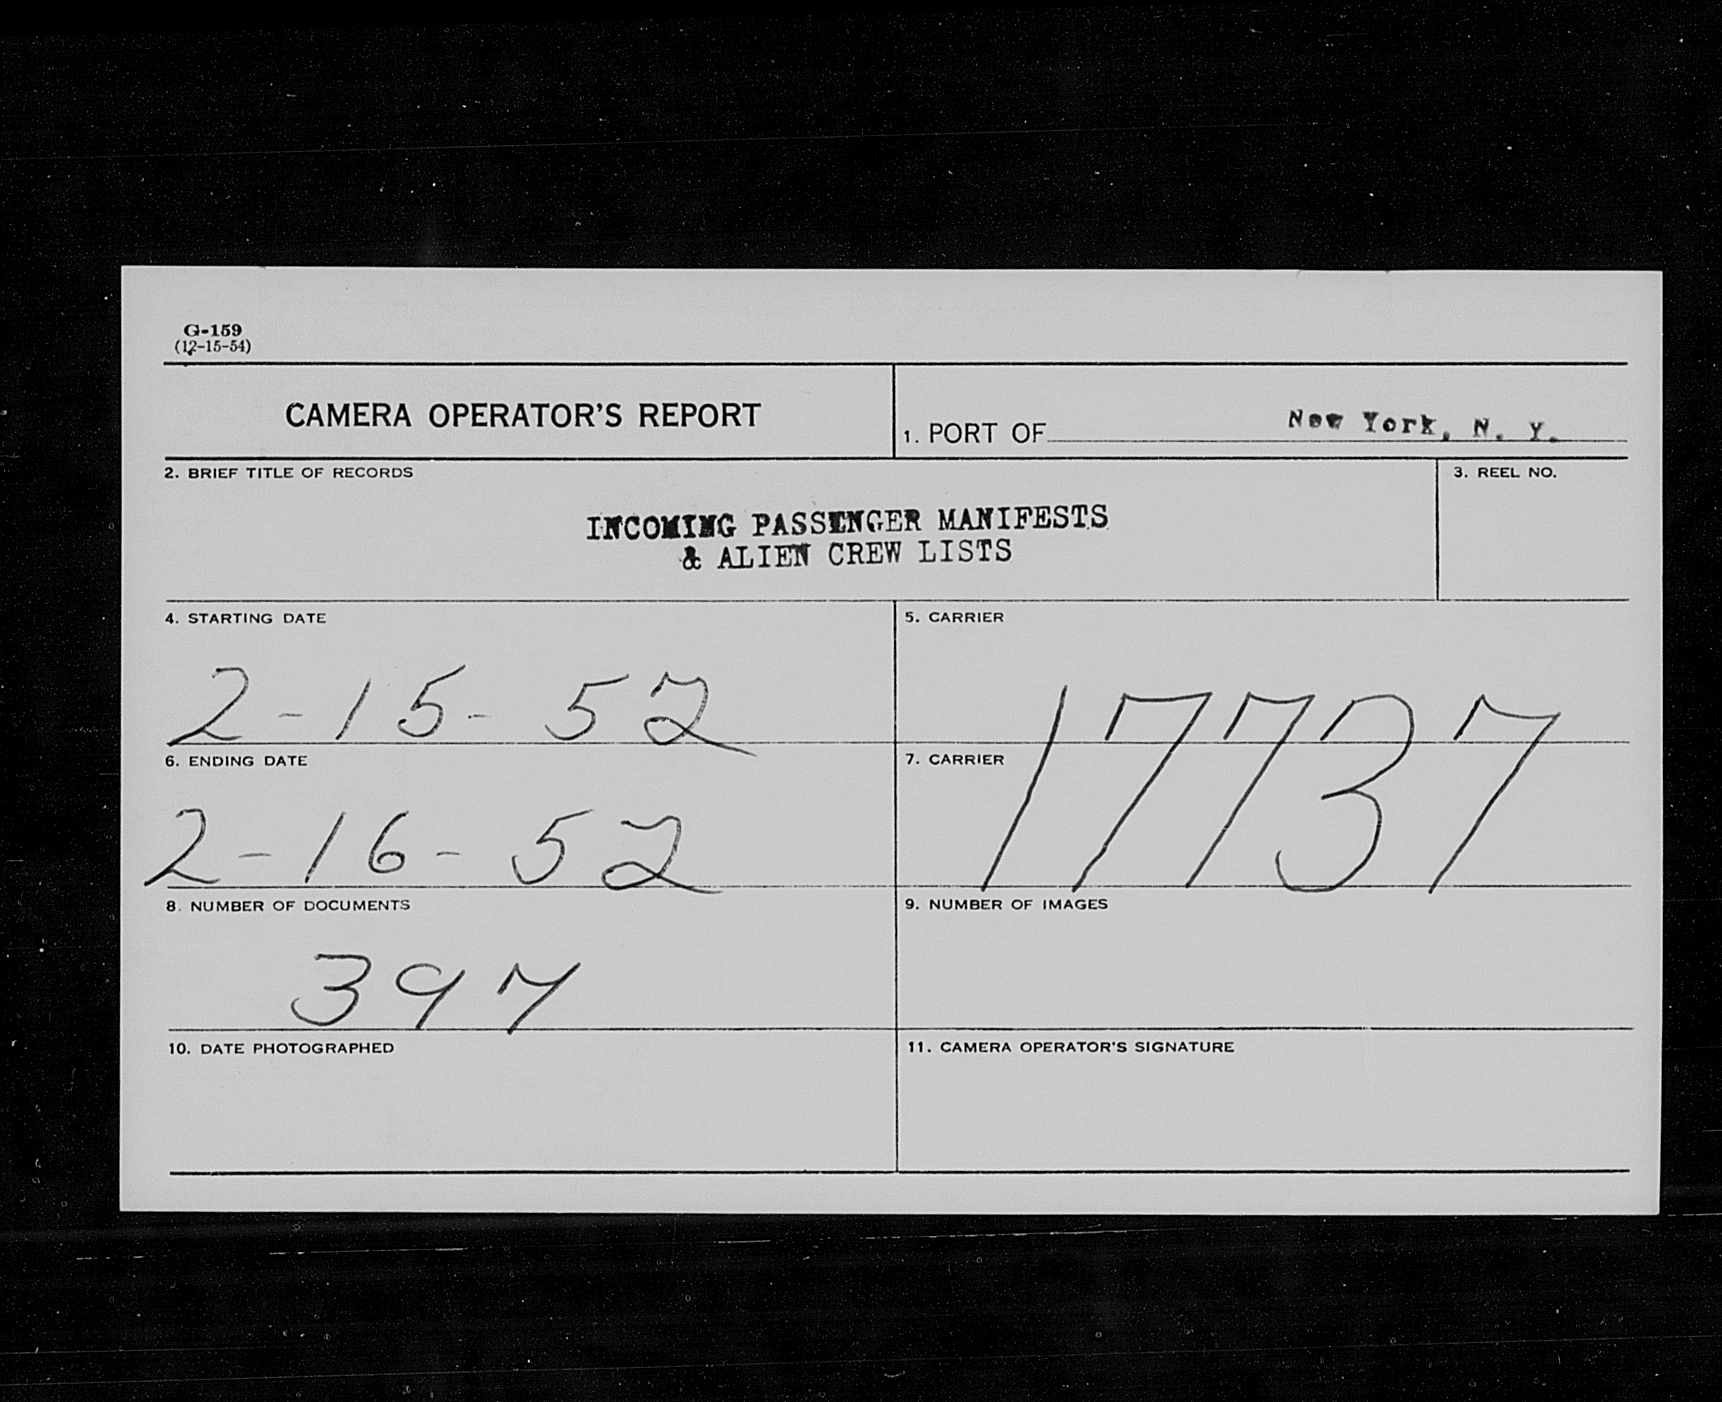 G-159
(12-15-54)
CAMERA OPERATOR'S REPORT
1. PORT OF New York, N. Y.
2. BRIEF TITLE OF RECORDS
INCOMING PASSENGER MANIFESTS
& ALIEN CREW LISTS
3. REEL NO.
4. STARTING DATE
2-15-52
5. CARRIER
6. ENDING DATE
2-16-52
7. CARRIER
17737
8. NUMBER OF DOCUMENTS
397
9. NUMBER OF IMAGES
10. DATE PHOTOGRAPHED
11. CAMERA OPERATOR'S SIGNATURE